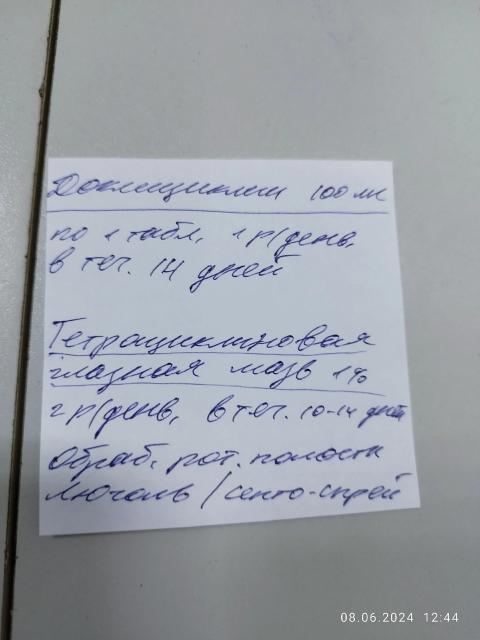 Доксициклин 100 мг
по 1 табл. 1 р/день,
в теч. 14 дней
Тетрациклиновая
глазная мазь 1%
2 р/день, в теч. 10-14 дней
Обраб. рот. полости
Люголь / септо-спрей
08.06.2024 12:44